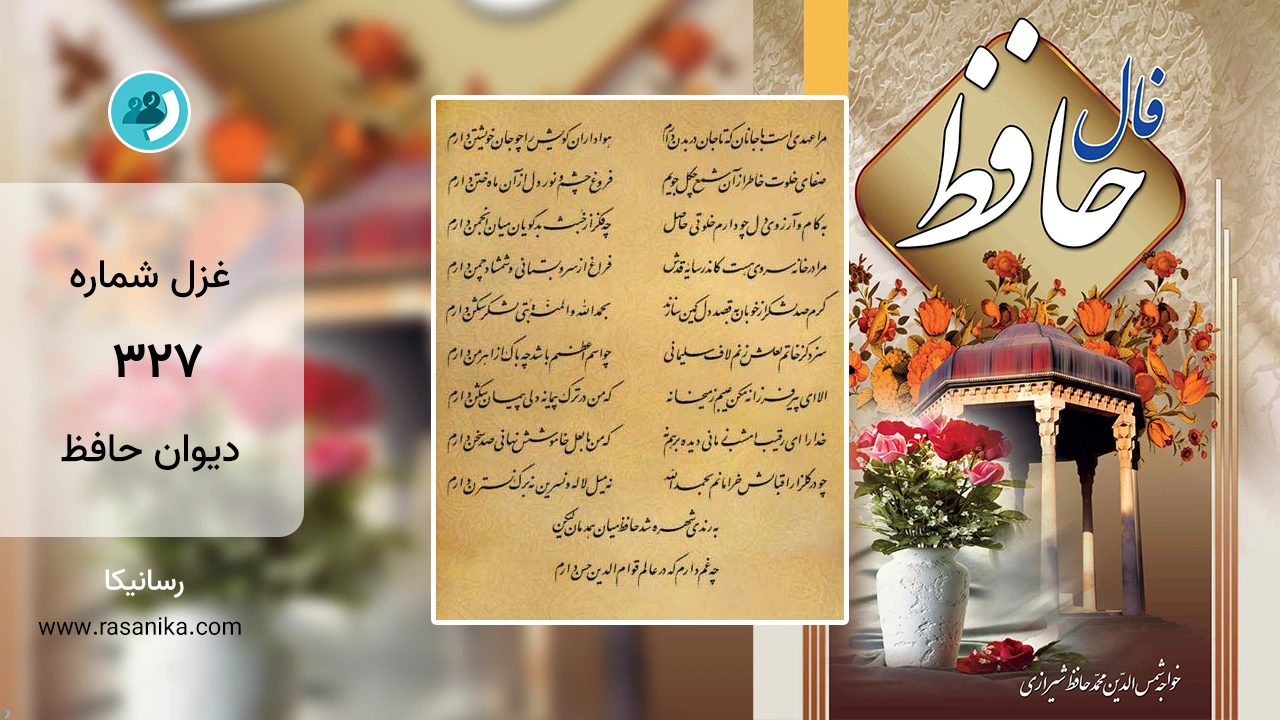 فال
حافظ
مرا عهدیست با جانان که تا جان در بدن دارم
هواداران کویش را چو جان خویشتن دارم
صفای خلوت خاطر از آن شمع چگل جویم
فروغ چشم و نور دل از آن ماه ختن دارم
به کام و آرزوی دل چو دارم خلوتی حاصل
چه فکر از خبث بدگویان میان انجمن دارم
مرا در خانه سروی هست کاندر سایه قدش
فراغ از سرو بستانی و شمشاد چمن دارم
گرم صد لشکر از خوبان به قصد دل کمین سازند
بحمد الله و المنه بتی لشکرشکن دارم
سزد کز خاتم لعلش زنم لاف سلیمانی
چو اسم اعظمم باشد چه باک از اهرمن دارم
الا ای پیر فرزانه مکن عیبم ز میخانه
که من در ترک پیمانه دلی پیمان شکن دارم
خدا را ای رقیب امشب زمانی دیده بر هم نه
که من با لعل خاموشش نهانی صد سخن دارم
چو در گلزار اقبالش خرامانم بحمدالله
نه میل لاله و نسرین نه برگ نسترن دارم
به رندی شهره شد حافظ میان همدمان لیکن
چه غم دارم که در عالم قوام الدین حسن دارم
غزل شماره
۳۲۷
دیوان حافظ
رسانیکا
www.rasanika.com
خواجه شمس الدّین محمّد حافظ شیرازی